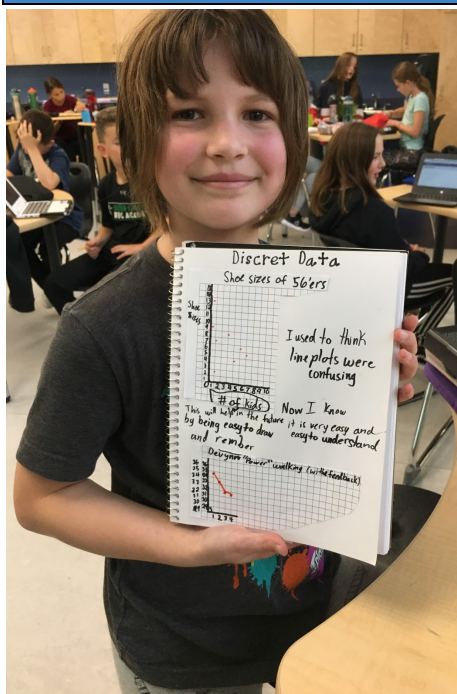 Discret Data
Shoe sizes of 56'ers
Shoe
Sizes
1 2 3 4 5 6 7 8 9 10
# of kids
I used to think
line plots were
confusing
Now I know
it is very easy and
easy to understand
This will help in the future
by being easy to draw
and rember
Devynn "Power" walking (with feedback)
1 2 3 4